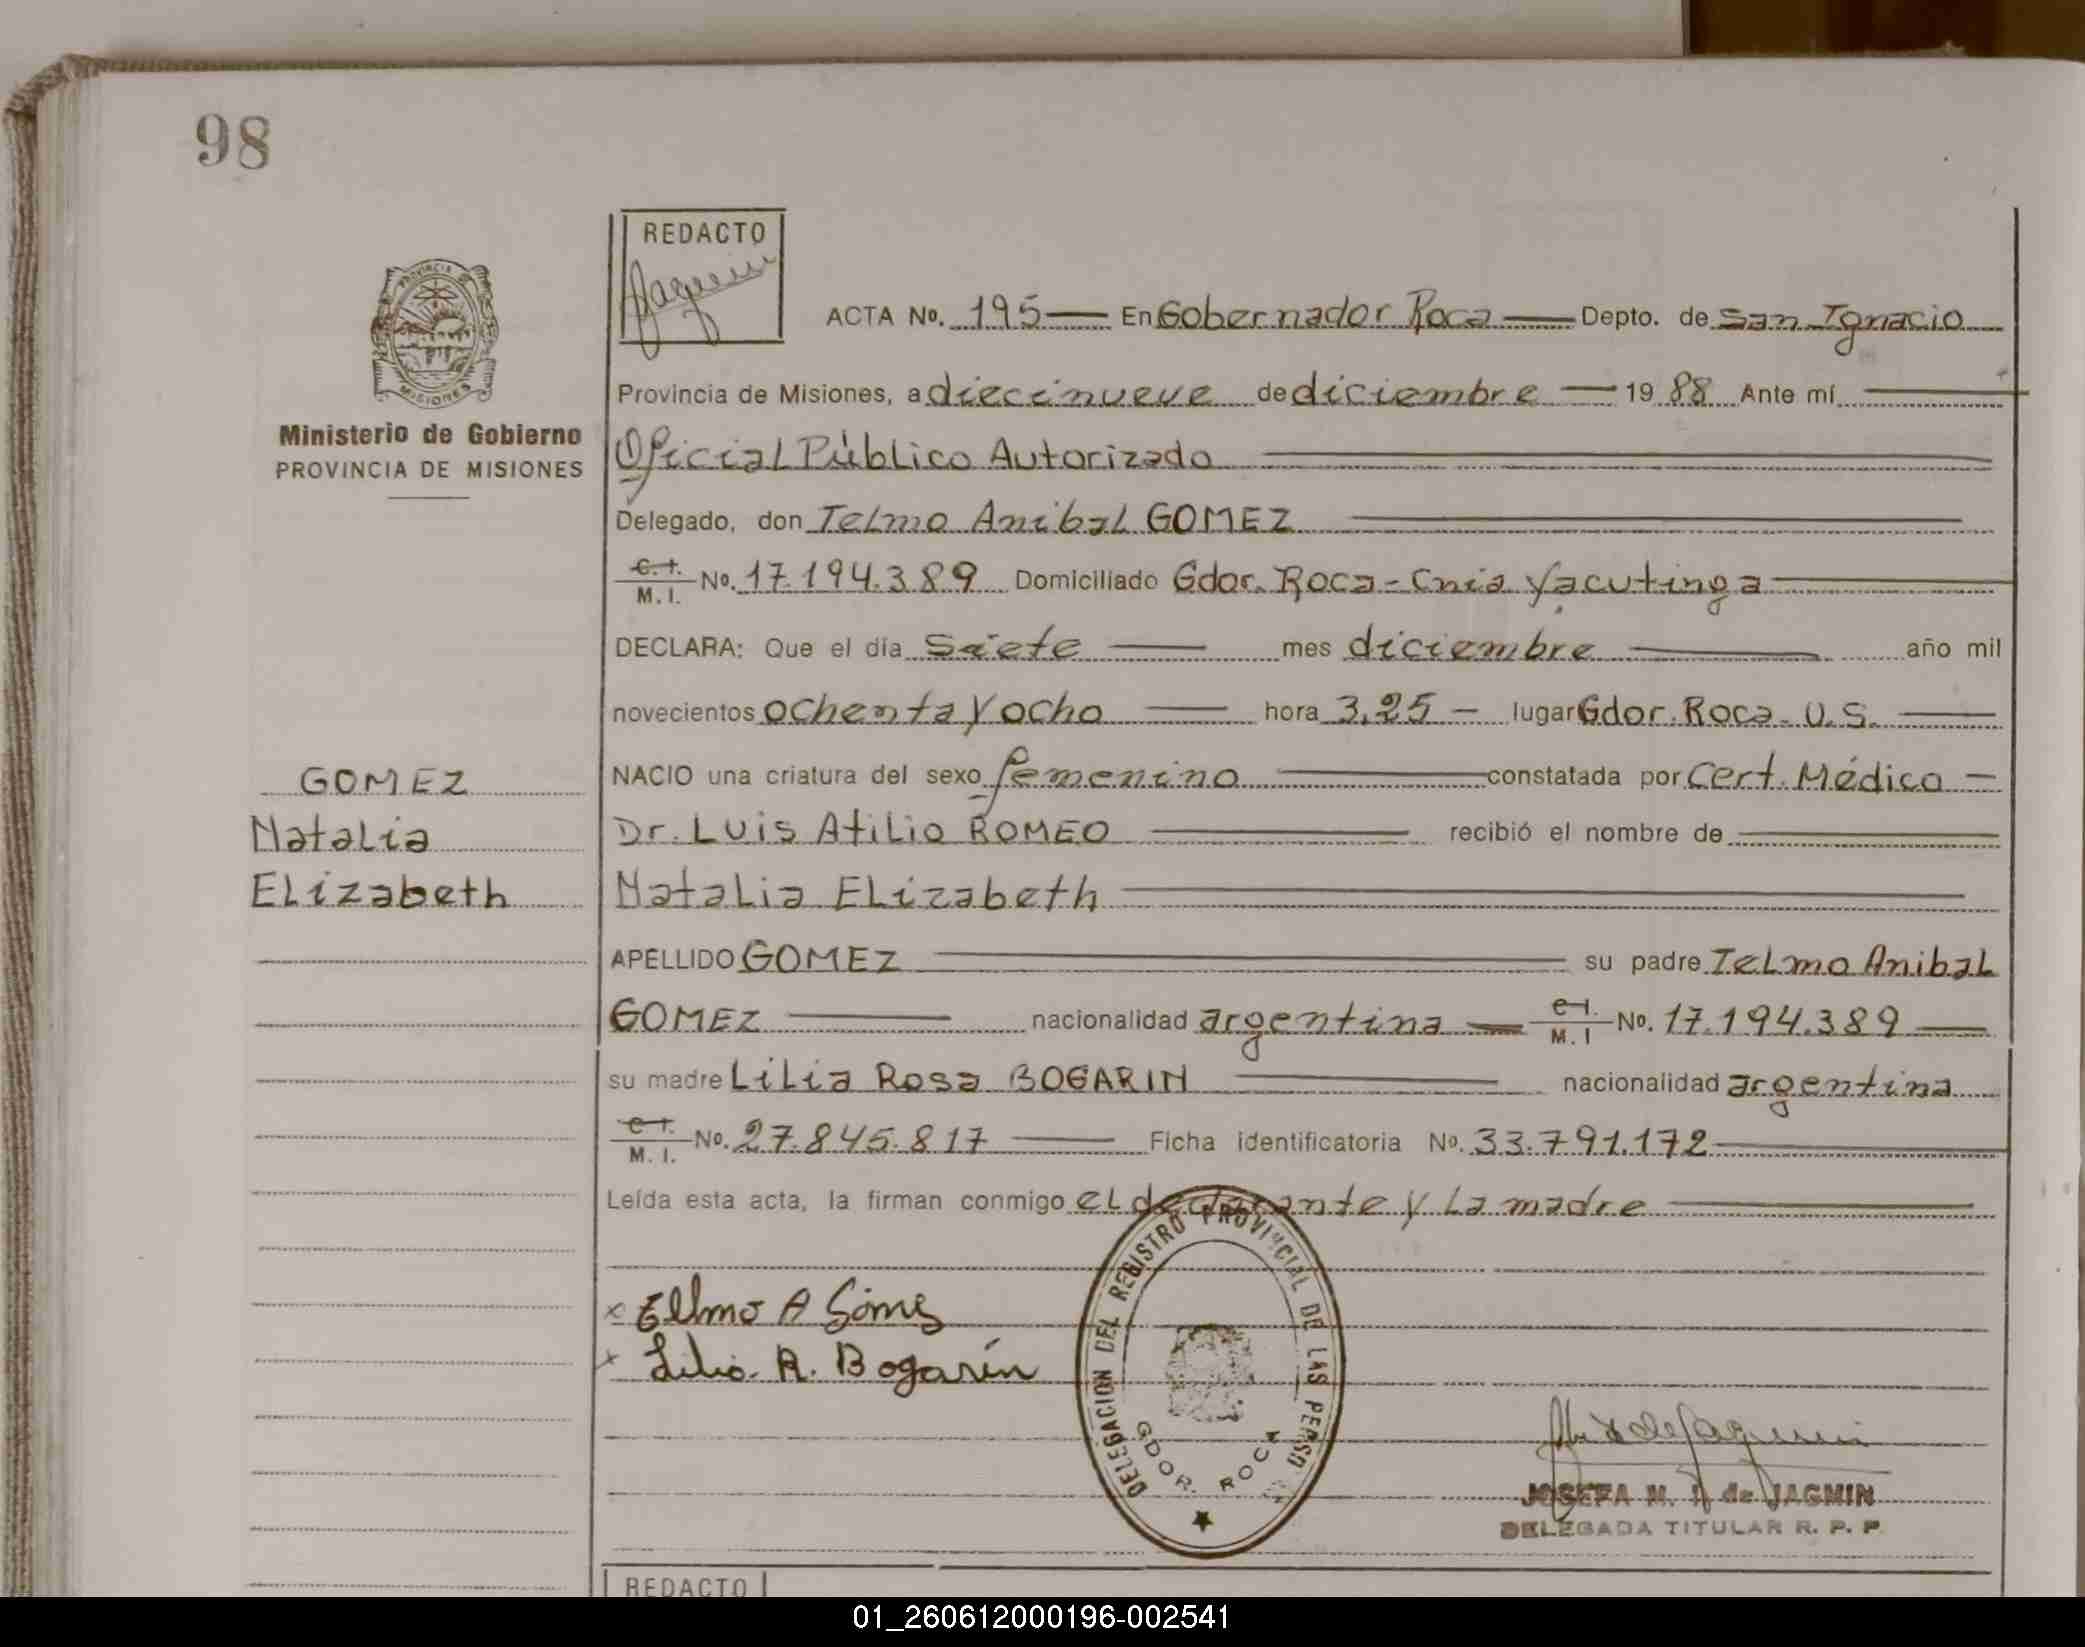 98
REDACTO
Jagmin
ACTA No. 195 — En Gobernador Roca — Depto. de San Ignacio
Provincia de Misiones, a diecinueve de diciembre — 19 88 Ante mí
Ministerio de Gobierno
PROVINCIA DE MISIONES
Oficial Público Autorizado
Delegado, don Telmo Anibal GOMEZ
C.I. M.I. No. 17.194.389 Domiciliado Gdor. Roca - Cnia Yacutinga
DECLARA: Que el día Siete — mes diciembre — año mil
novecientos ochenta y ocho — hora 3,25 — lugar Gdor. Roca - U.S.
NACIO una criatura del sexo femenino — constatada por Cert. Médico —
Dr. Luis Atilio ROMEO — recibió el nombre de
Natalia Elizabeth
APELLIDO GOMEZ — su padre Telmo Anibal
GOMEZ — nacionalidad argentina — C.I. M.I No. 17.194.389 —
su madre Lilia Rosa BOGARIN — nacionalidad argentina
C.I. M.I. No. 27.845.817 — Ficha identificatoria No. 33.791.172
Leída esta acta, la firman conmigo el declarante y la madre
GOMEZ
Natalia
Elizabeth
x Telmo A Gómes
x Lilia. R. Bogarín
DELEGACION DEL REGISTRO PROVINCIAL DE LAS PERSO
GDOR. ROCA
JOSEFA M. de JAGMIN
DELEGADA TITULAR R. P. P.
REDACTO
01_260612000196-002541